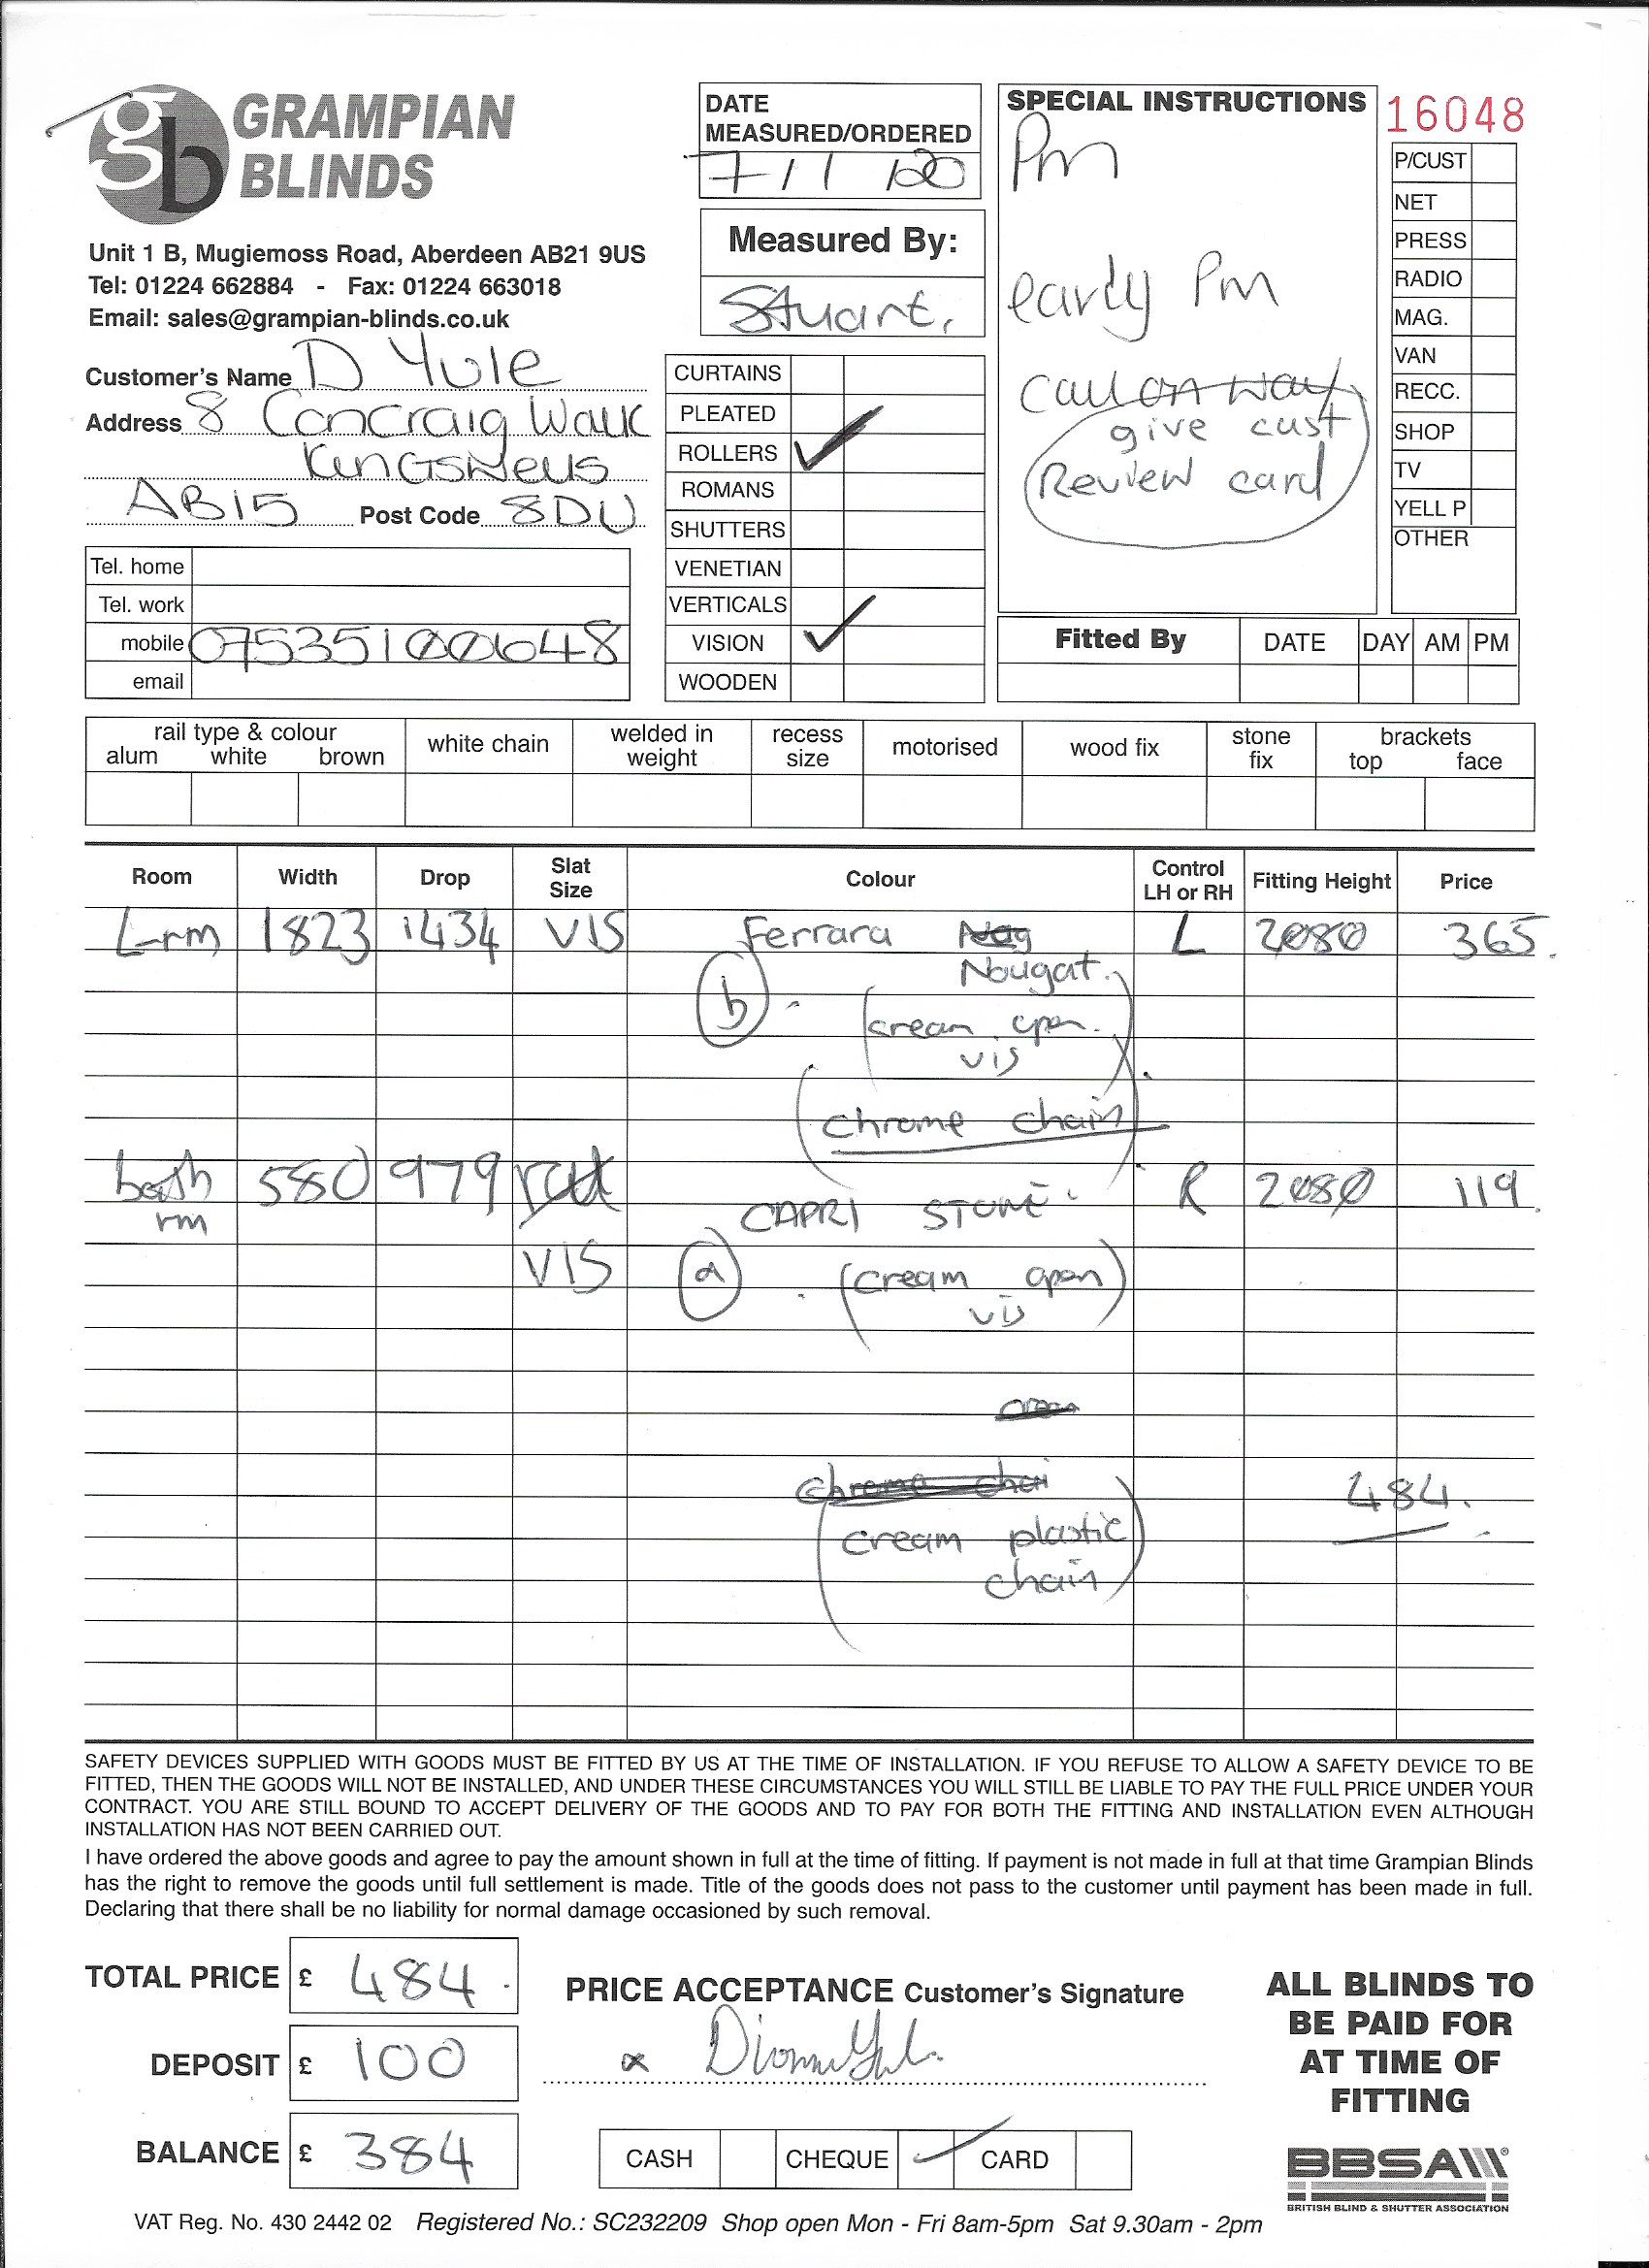 GRAMPIAN
BLINDS
Unit 1 B, Mugiemoss Road, Aberdeen AB21 9US
Tel: 01224 662884 - Fax: 01224 663018
Email: sales@grampian-blinds.co.uk
DATE
MEASURED/ORDERED
7/1/20
Measured By:
Stuart.
SPECIAL INSTRUCTIONS
Pm
early Pm
Call on way
give cust
Review card
16048
P/CUST
NET
PRESS
RADIO
MAG.
VAN
RECC.
SHOP
TV
YELL P
OTHER
Customer's Name D Yule
Address 8 Concraig Walk
Kingswells
AB15 Post Code 8DU
Tel. home
Tel. work
mobile 07535100648
email
CURTAINS
PLEATED
ROLLERS ✓
ROMANS
SHUTTERS
VENETIAN
VERTICALS
VISION ✓
WOODEN
Fitted By DATE DAY AM PM
rail type & colour white chain welded in weight recess size motorised wood fix stone fix brackets
alum white brown top face
Room Width Drop Slat Size Colour Control LH or RH Fitting Height Price
L-rm 1823 1434 VIS Ferrara L 2080 365.
Nougat.
b
(cream open
vis)
(chrome chain)
bath 580 979 R 2080 119.
rm CAPRI STONE
VIS a (cream open
vis)
chrome chai 484.
(cream plastic
chain)
SAFETY DEVICES SUPPLIED WITH GOODS MUST BE FITTED BY US AT THE TIME OF INSTALLATION. IF YOU REFUSE TO ALLOW A SAFETY DEVICE TO BE
FITTED, THEN THE GOODS WILL NOT BE INSTALLED, AND UNDER THESE CIRCUMSTANCES YOU WILL STILL BE LIABLE TO PAY THE FULL PRICE UNDER YOUR
CONTRACT. YOU ARE STILL BOUND TO ACCEPT DELIVERY OF THE GOODS AND TO PAY FOR BOTH THE FITTING AND INSTALLATION EVEN ALTHOUGH
INSTALLATION HAS NOT BEEN CARRIED OUT.
I have ordered the above goods and agree to pay the amount shown in full at the time of fitting. If payment is not made in full at that time Grampian Blinds
has the right to remove the goods until full settlement is made. Title of the goods does not pass to the customer until payment has been made in full.
Declaring that there shall be no liability for normal damage occasioned by such removal.
TOTAL PRICE £ 484.
DEPOSIT £ 100
BALANCE £ 384
PRICE ACCEPTANCE Customer's Signature
x
CASH CHEQUE ✓ CARD
ALL BLINDS TO
BE PAID FOR
AT TIME OF
FITTING
BBSA
BRITISH BLIND & SHUTTER ASSOCIATION
VAT Reg. No. 430 2442 02 Registered No.: SC232209 Shop open Mon - Fri 8am-5pm Sat 9.30am - 2pm